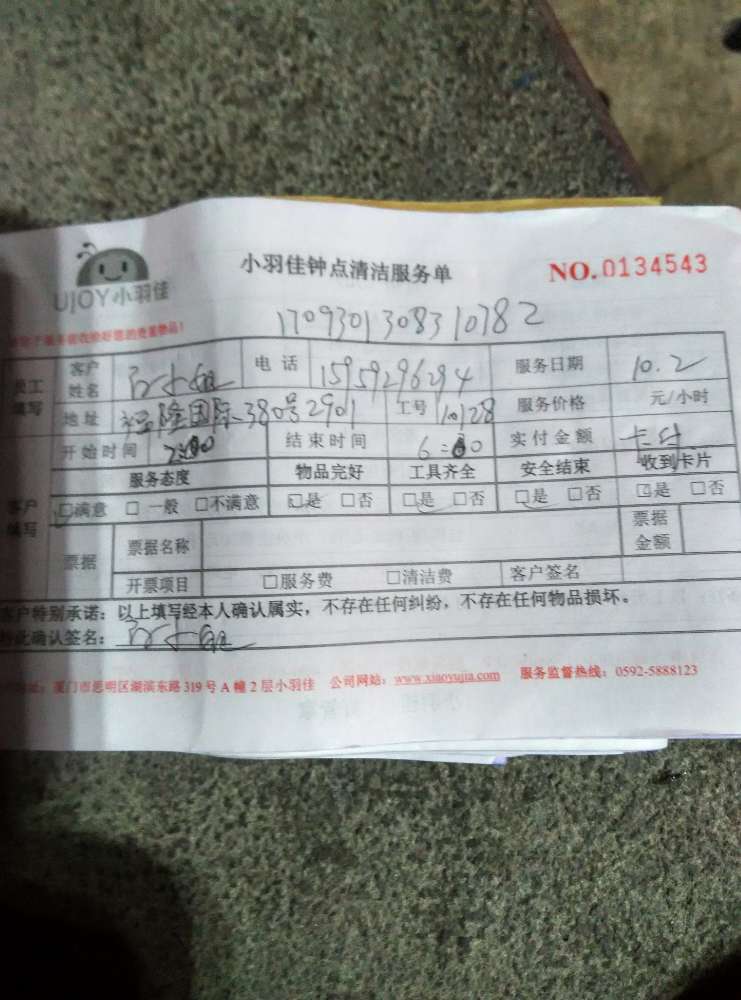 UJOY小羽佳
小羽佳钟点清洁服务单
NO.0134543
1709301308310782
员工填写
客户姓名 白小姐 电话 15959296294 服务日期 10.2
地址 禄隆国际380号2901 工号 10128 服务价格 元/小时
开始时间 2:00 结束时间 6:00 实付金额 卡付
客户填写
服务态度 物品完好 工具齐全 安全结束 收到卡片
□满意 □一般 □不满意 □是 □否 □是 □否 □是 □否 □是 □否
票据 票据名称 票据金额
开票项目 □服务费 □清洁费 客户签名
客户特别承诺:以上填写经本人确认属实,不存在任何纠纷,不存在任何物品损坏。
特此确认签名:白小姐
地址:厦门市思明区湖滨东路319号A幢2层小羽佳 公司网站:www.xiaoyujia.com 服务监督热线:0592-5888123